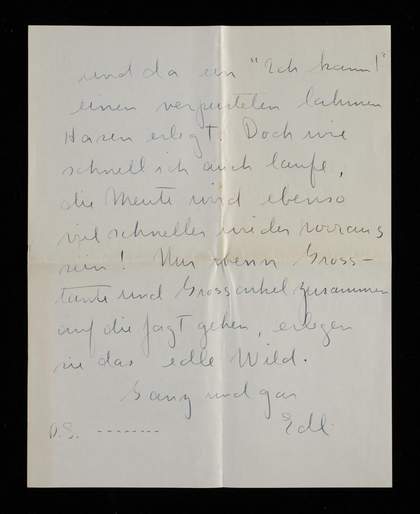 und da ein "Ich kann!"
einen verpusteten lahmen
Hasen erlegt. Doch wie
schnell ich auch laufe,
die Meute wird ebenso
viel schneller wieder vorraus
sein! Nur wenn Gross-
tante und Grossonkel zusammen
auf die Jagt gehen, erlegen
sie das edle Wild.
Ganz und gar
Edl
P.S. --------